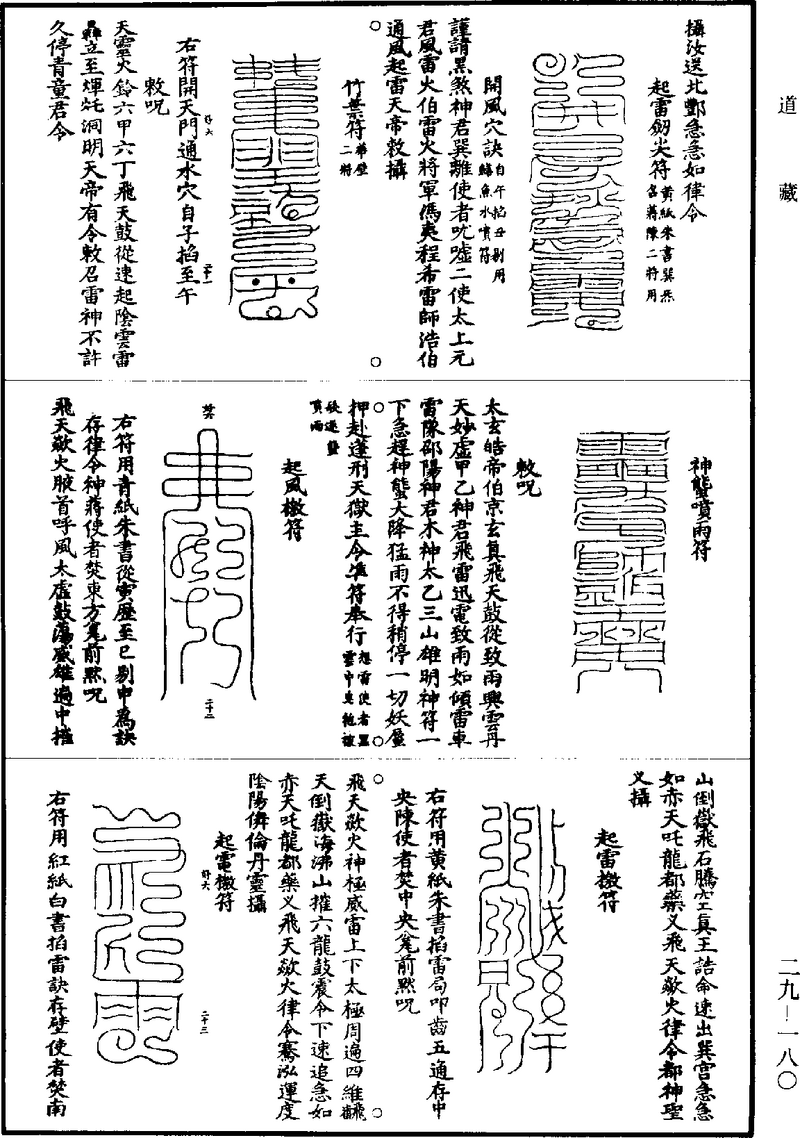 道藏
攝汝送北酆急急如律令
起雷劒尖符
黃紙朱書巽炁
名蔣陳二符用
開風穴訣
自午掐丑剔用
鯑魚水噴符
謹請黑煞神君巽離使者吮噓二使太上元
君風雷火伯雷火將軍馮夷程希雷師浩伯
通風起雷天帝敕攝
竹葉符
二將
右符開天門通水穴自子掐至午
敕呪
天靈火鈴六甲六丁飛天鼓從速起陰雲雷
轟立至煇㸅洞明天帝有令敕召雷神不許
久停青童君令
神螚噴雨符
敕呪
太玄皓帝伯京玄真飛天鼓從致雨興雲丹
天妙虛甲乙神君飛雷迅電致雨如傾雷車
雷隊邵陽神君木神太乙三山雄明神符一
下急趕神螚大降猛雨不得稍停一切妖蜃
押赴蓬刑天獄主令準符奉行
想雷使者黑
雲中臭
噴雨
起風檄符
焚
二十二
右符用青紙朱書從寅歷至巳剔申為訣
存律令神蔣使者焚東方竃前黙呪
飛天歘火腋首呼風太虛鼓蕩威雄遍中摧
山倒嶽飛石騰空真王誥命速出巽宮急急
如赤天吒龍都藥义飛天歘火律令都神聖
义攝
起雷檄符
右符用黃紙朱書掐雷局叩齒五通存中
央陳使者焚中央竃前黙呪
飛天歘火神極威雷上下太極周遍四維飛
天倒嶽海沸山摧六龍鼓震令下速追急如
赤天吒龍都藥义飛天歘火律令騫泓運度
陰陽儕倫丹靈攝
起電檄符
二十三
右符用紅紙白書掐雷訣存壁使者焚南
二九—一八〇